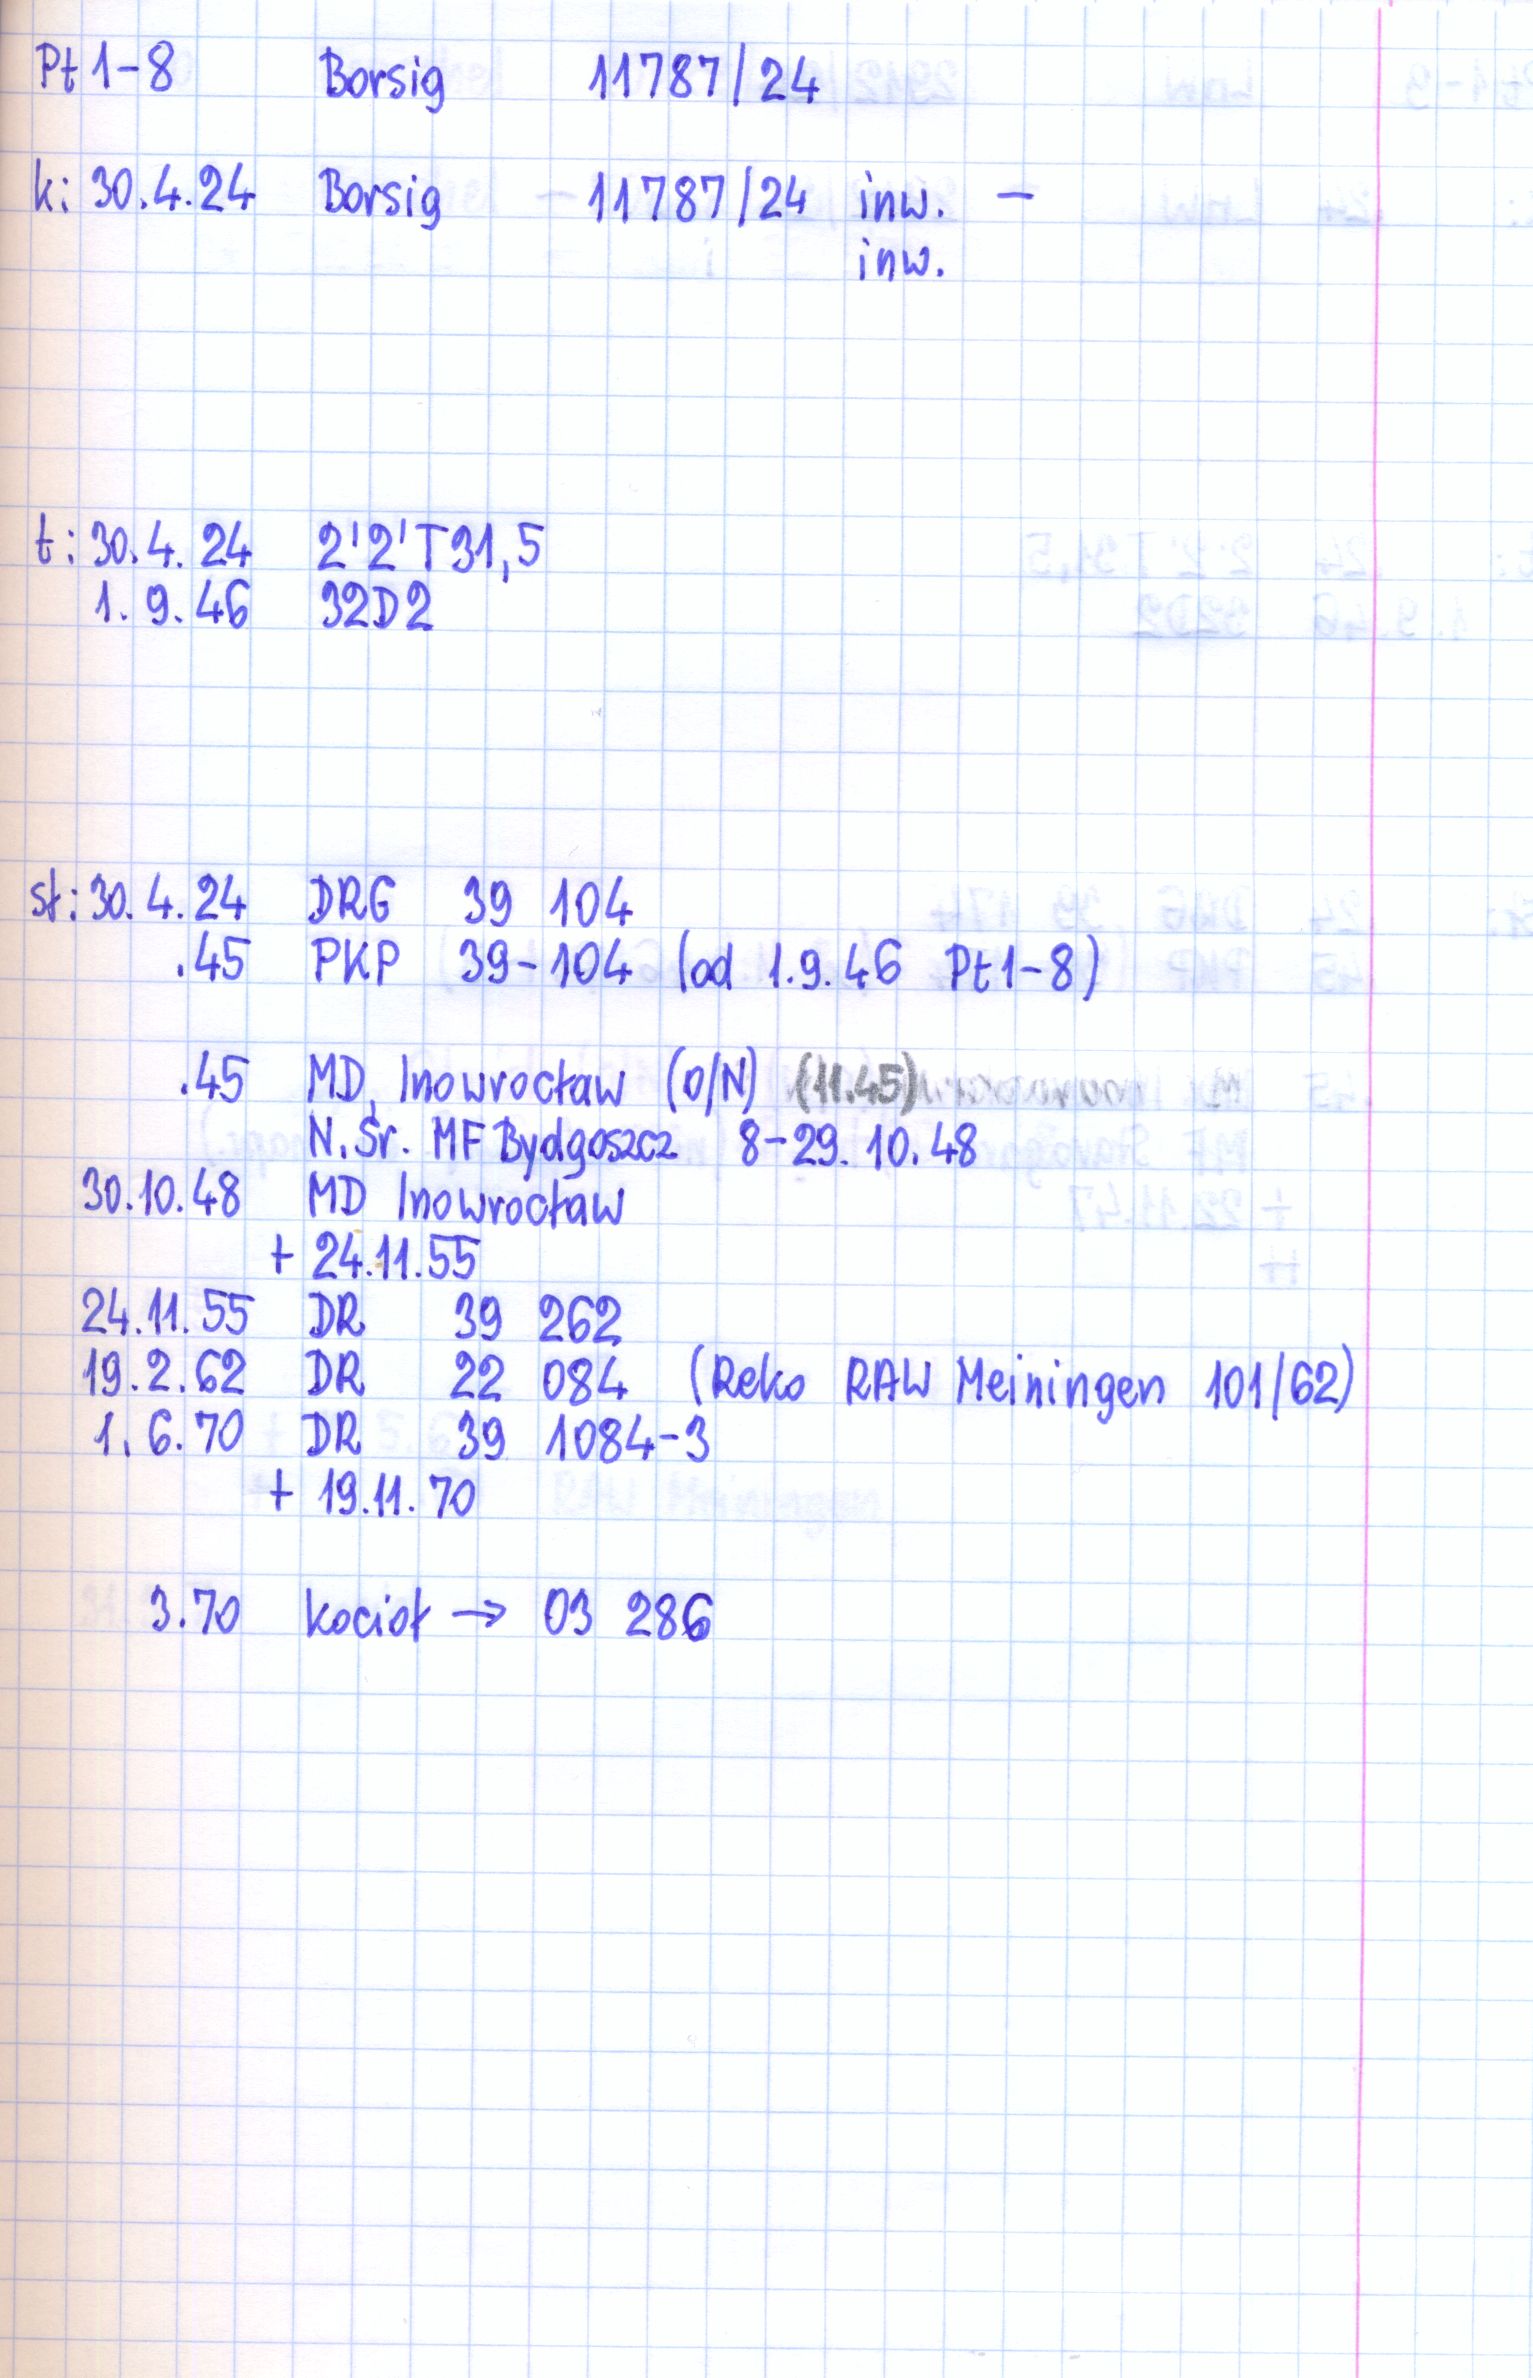 Pt 1-8 Borsig 11787/24
k: 30.4.24 Borsig 11787/24 inw. -
inw.
t: 30.4.24 2'2'T31,5
1.9.46 32D2
st: 30.4.24 DRG 39 104
.45 PKP 39-104 (od 1.9.46 Pt 1-8)
.45 MD Inowrocław (O/N) (11.45)
N.Śr. MF Bydgoszcz 8-29.10.48
30.10.48 MD Inowrocław
+ 24.11.55
24.11.55 DR 39 262
19.2.62 DR 22 084 (Reko RAW Meiningen 101/62)
1.6.70 DR 39 1084-3
+ 19.11.70
3.70 kocioł → 03 286